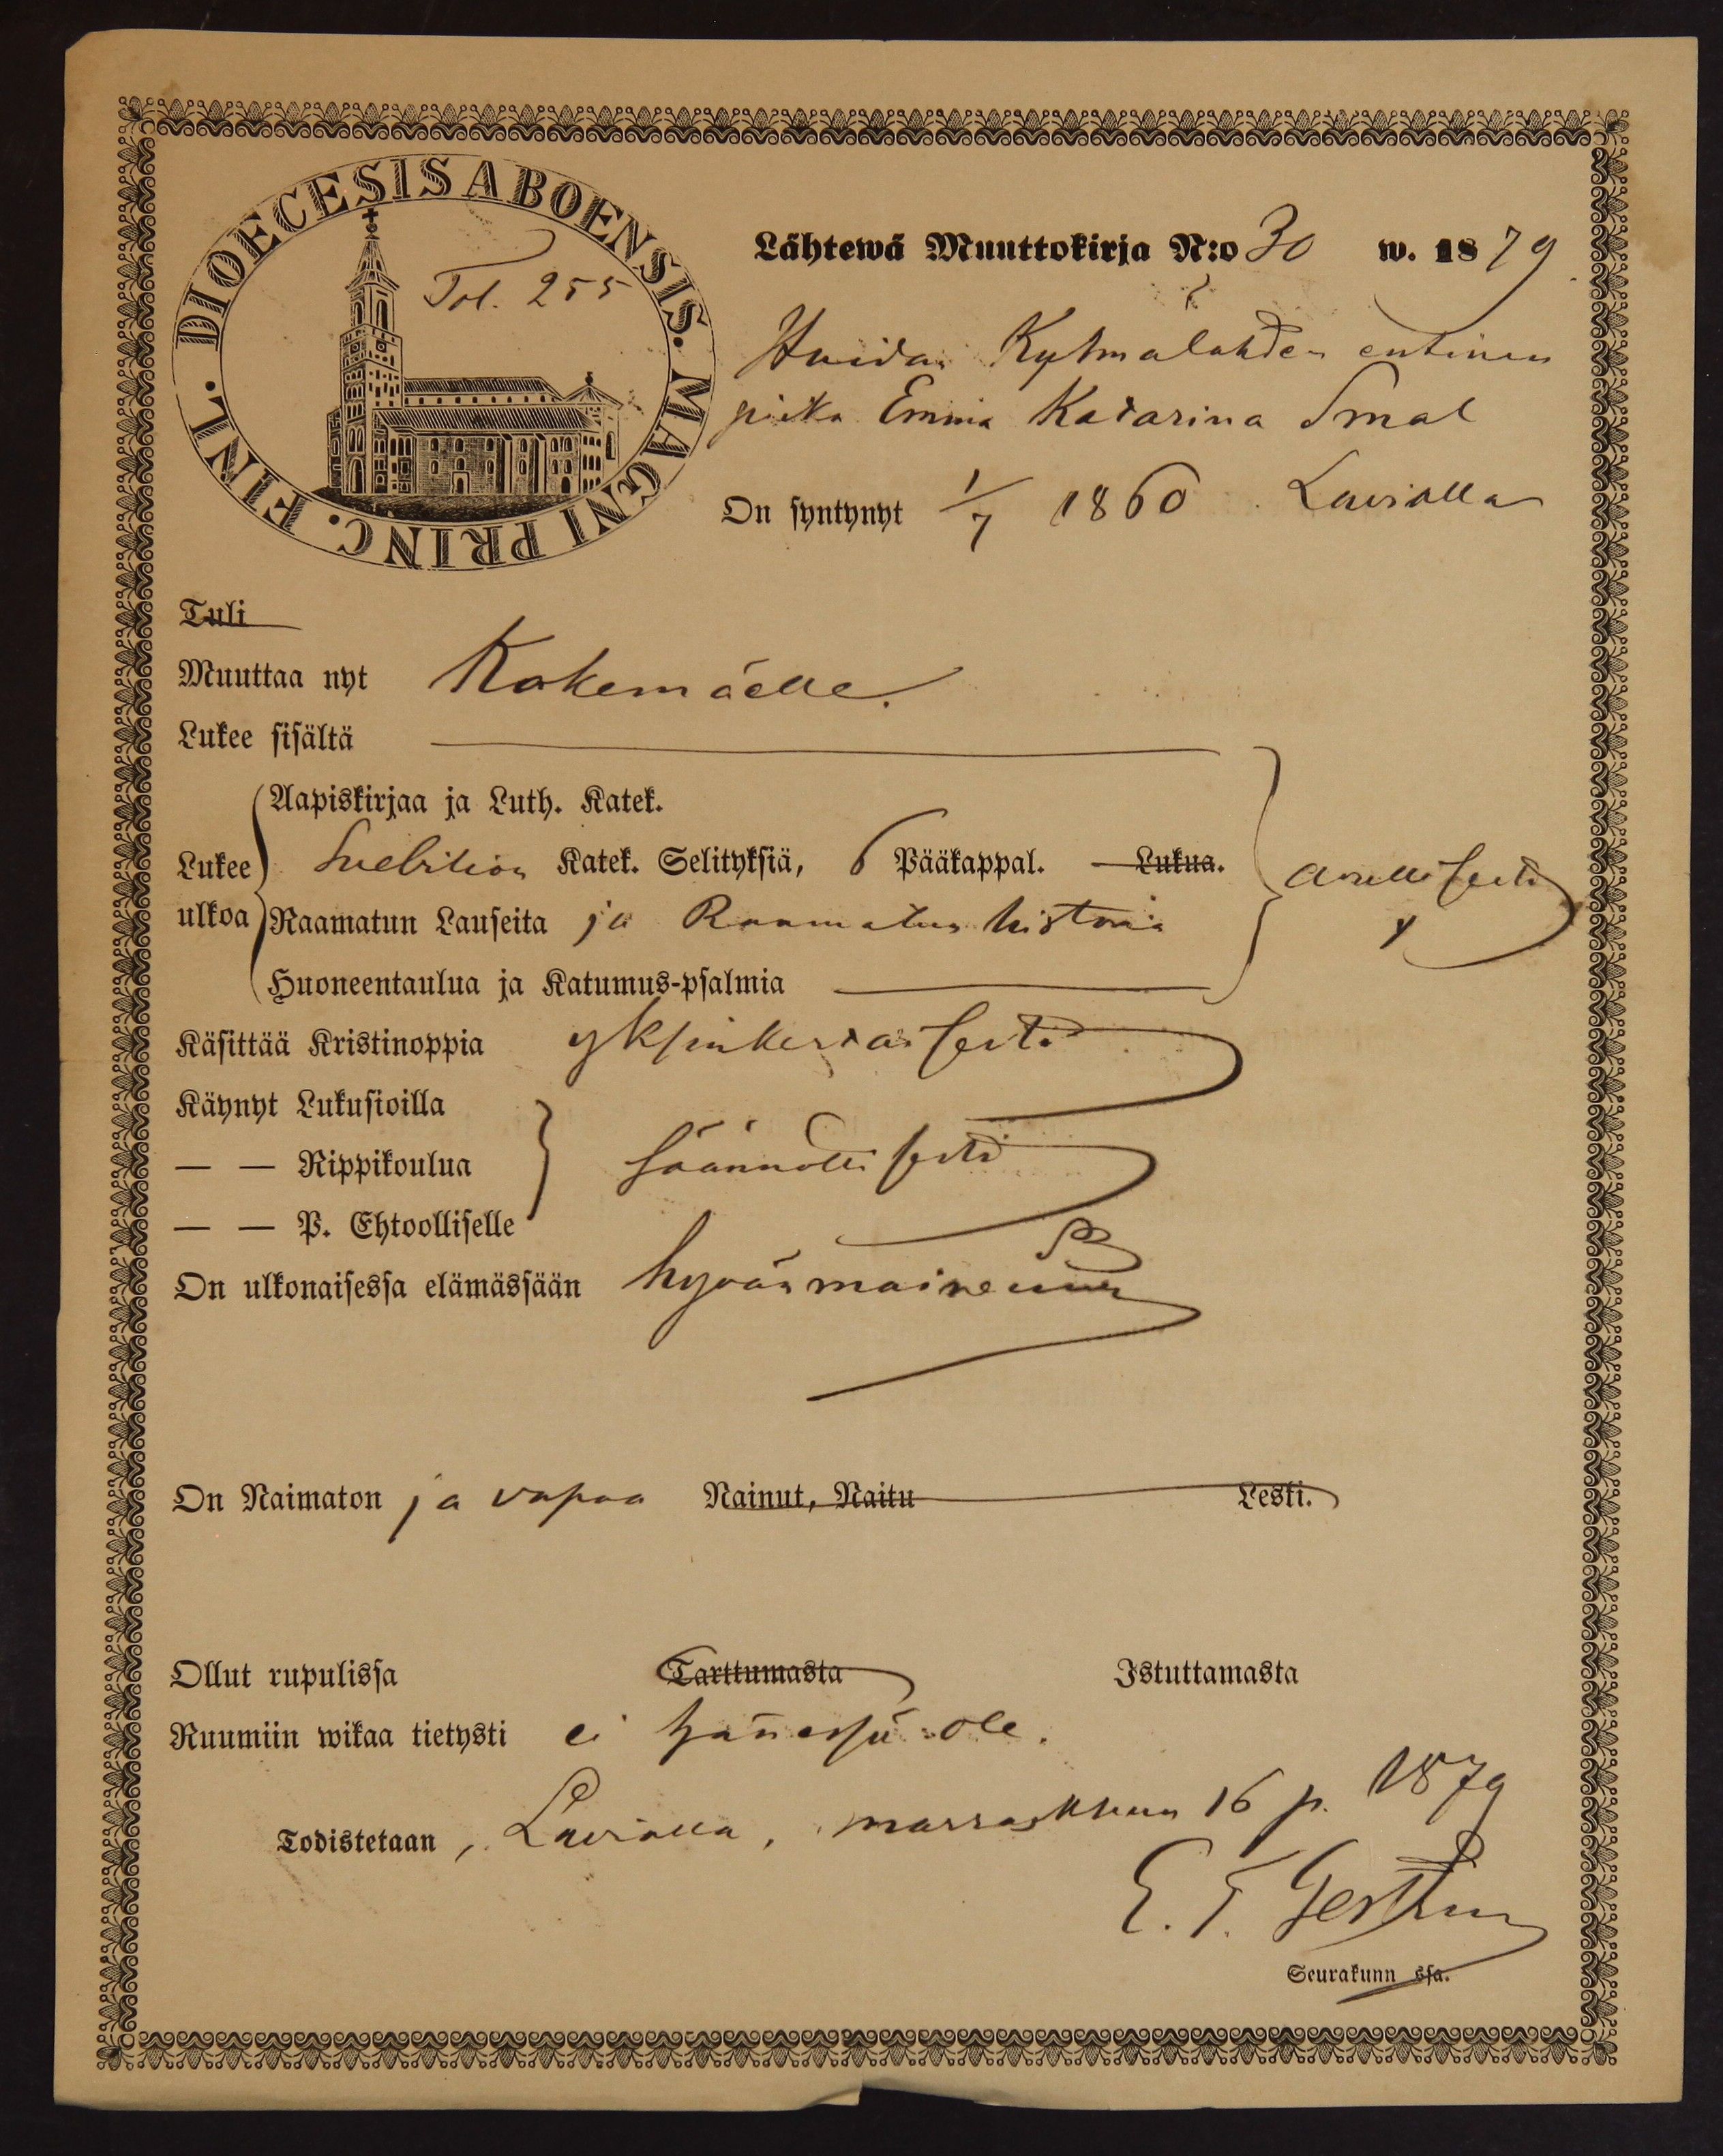 DIOECESIS ABOENSIS. MAGNI PRINC. FINL.
Fol. 255
Lähtewä Muuttokirja N:o 30 w. 1879
Kylmälahden entinen
piika Emma Katarina Smal
On syntynyt 1/7 1860 Laviolla
Tuli
Muuttaa nyt Kokemäelle.
Lukee sisältä
Aapiskirjaa ja Luth. Katek.
Lukee ulkoa
Svebilion Katek. Selityksiä, 6 Pääkappal. Lukua.
Raamatun Lauseita ja Raamatun historia
Huoneentaulua ja Katumus-psalmia
Käsittää Kristinoppia yksinkertaisesti
Käynyt Lukusioilla
— — Rippikoulua säännöllisesti
— — P. Ehtoolliselle
On ulkonaisessa elämässään hyvänmaineinen
On Naimaton ja vapaa Nainut, Naitu Leski.
Ollut rupulissa Tarttumasta Istuttamasta
Ruumiin wikaa tietysti ei hänessä ole.
Todistetaan, Laviolla, marraskuun 16 p. 1879
E. F.
Seurakunn ssa.